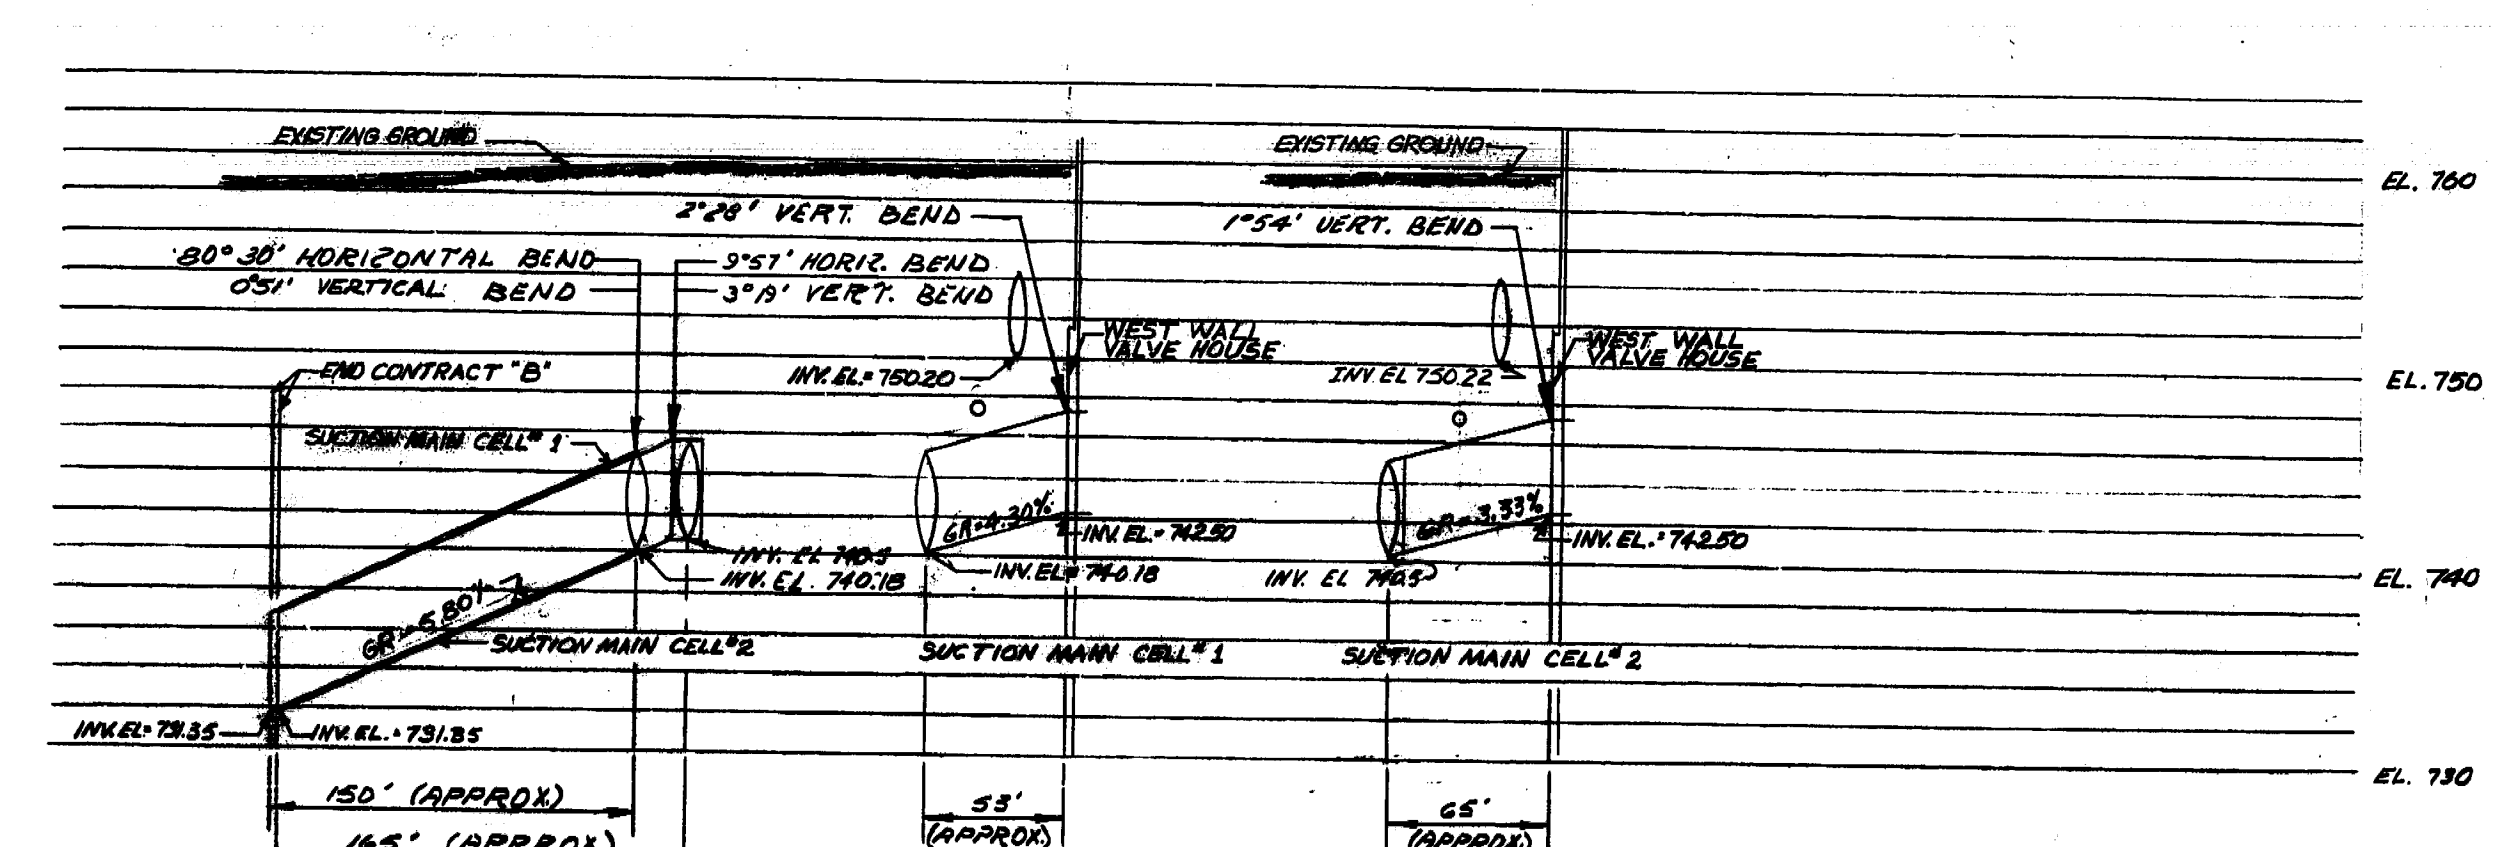 EXISTING GROUND
EXISTING GROUND
EL. 760
2°28' VERT. BEND
1°54' VERT. BEND
80°30' HORIZONTAL BEND
9°57' HORIZ. BEND
0°51' VERTICAL BEND
VERT. BEND
WEST WALL
VALVE HOUSE
WEST WALL
VALVE HOUSE
END CONTRACT "B"
INV. EL.= 750.20
INV EL 750.22
EL. 750
SUCTION MAIN CELL# 1
GR=4.30%
GR=3.33%
INV. EL.= 742.50
INV. EL.= 742.50
INV. EL 740.5
INV. EL. 740.18
INV. EL= 740.18
INV. EL 740.5
EL. 740
GR= 5.80%
SUCTION MAIN CELL#2
SUCTION MAIN CELL# 1
SUCTION MAIN CELL# 2
INV. EL= 731.35
INV. EL.=
EL. 730
150' (APPROX.)
53'
(APPROX.)
65'
(APPROX.)
165' (APPROX.)